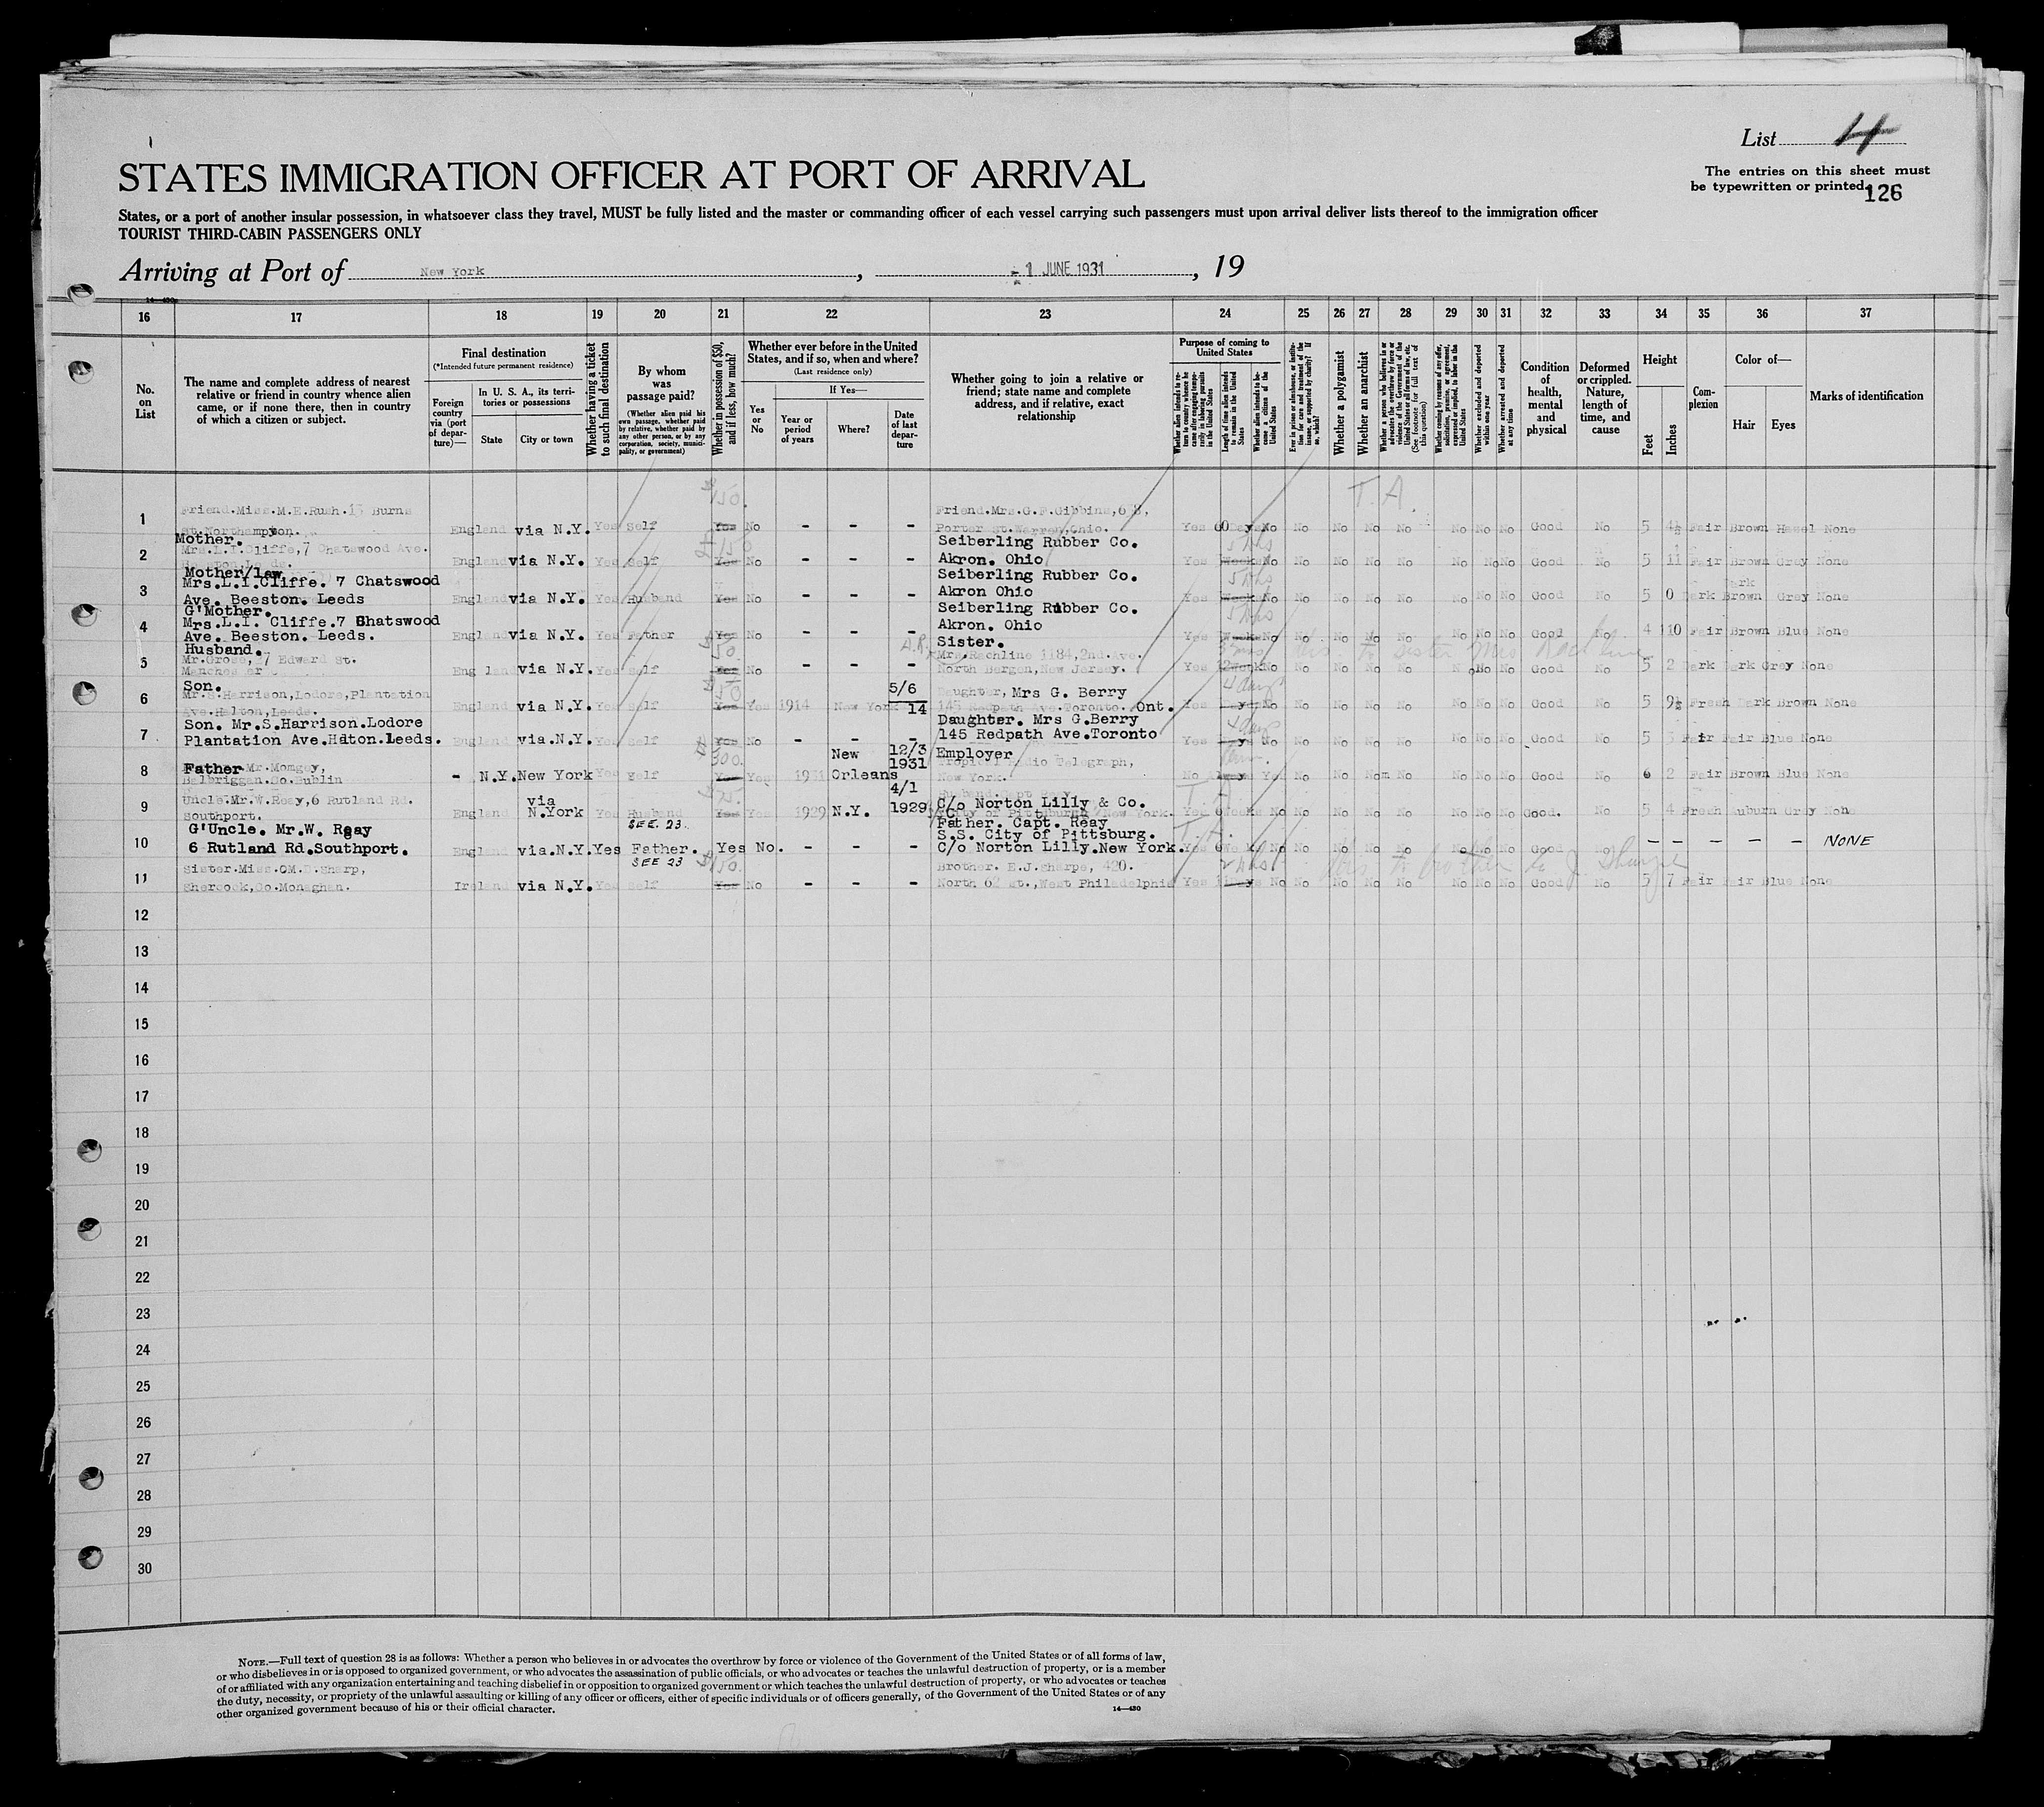 List 4
The entries on this sheet must
be typewritten or printed.
126
STATES IMMIGRATION OFFICER AT PORT OF ARRIVAL
States, or a port of another insular possession, in whatsoever class they travel, MUST be fully listed and the master or commanding officer of each vessel carrying such passengers must upon arrival deliver lists thereof to the immigration officer
TOURIST THIRD-CABIN PASSENGERS ONLY
Arriving at Port of New York, 1 JUNE 1931, 19
16 17 18 19 20 21 22 23 24 25 26 27 28 29 30 31 32 33 34 35 36 37
No. on List
The name and complete address of nearest relative or friend in country whence alien came, or if none there, then in country of which a citizen or subject.
Final destination
(*Intended future permanent residence)
Foreign country via (port of departure)—
In U. S. A., its territories or possessions
State
City or town
Whether having a ticket to such final destination
By whom was passage paid?
(Whether alien paid his own passage, whether paid by relative, whether paid by any other person, or by any corporation, society, municipality, or government)
Whether in possession of $50, and if less, how much?
Whether ever before in the United States, and if so, when and where?
(Last residence only)
Yes or No
If Yes—
Year or period of years
Where?
Date of last departure
Whether going to join a relative or friend; state name and complete address, and if relative, exact relationship
Purpose of coming to United States
Whether alien intends to return to country whence he came after engaging temporarily in laboring pursuits in the United States
Length of time alien intends to remain in the United States
Whether alien intends to become a citizen of the United States
Ever in prison or almshouse, or institution for care and treatment of the insane, or supported by charity? If so, which?
Whether a polygamist
Whether an anarchist
Whether excluded and deported within one year
Whether arrested and deported at any time
Condition of health, mental and physical
Deformed or crippled. Nature, length of time, and cause
Height
Feet
Inches
Complexion
Color of—
Hair
Eyes
Marks of identification
T. A.
1 Friend.Miss.M.E.Rush.13 Burns St.Northampton. England via N.Y. Yes Self $150. Yes No - - - Friend.Mrs.G.F.Gibbins, Porter St.Warren,Ohio. Yes 60 Days No No No No No No No No Good No 5 4½ Fair Brown Hazel None
2 Mother. Mrs.L.I.Cliffe,7 Chatswood Ave. England via N.Y. Yes Self 150 Yes No - - - Seiberling Rubber Co. Akron. Ohio Yes Weeks No No No No No No No No Good No 5 11 Fair Brown Grey None
3 Mother/law Mrs.L.I.Cliffe. 7 Chatswood Ave. Beeston. Leeds England via N.Y. Yes Husband Yes No - - - Seiberling Rubber Co. Akron Ohio Yes Weeks No No No No No No No No Good No 5 0 Dark Dark Brown Grey None
4 G'Mother. Mrs.L.I. Cliffe.7 Chatswood Ave. Beeston. Leeds. England via N.Y. Yes Father Yes No - - - Seiberling Rubber Co. Akron. Ohio Yes Weeks No No No No No No No No Good No 4 10 Fair Brown Blue None
5 Husband. Mr.Grose, 7 Edward St. Manchester England via N.Y. Yes Self 50. Yes No - - - Sister. Mrs.Rachline 1184,2nd.Ave. North Bergen,New Jersey. Yes 12 Weeks No No No No No No No No Good No 5 2 Dark Dark Grey None
6 Son. Mr.S.Harrison,Lodore,Plantation Ave.Halton,Leeds. England via N.Y. Yes Self $50 Yes Yes 1914 New York 5/6 14 Daughter, Mrs G. Berry 145 Redpath Ave.Toronto. Ont. 4 days Yes No No No No No No No No Good No 5 9½ Fresh Dark Brown None
7 Son. Mr.S.Harrison.Lodore Plantation Ave.Halton.Leeds. England via.N.Y. Yes Self Yes No - - - Daughter. Mrs G.Berry 145 Redpath Ave.Toronto 4 days Yes No No No No No No No No Good No 5 Fair Fair Blue None
8 Father Mr.Momgey, Balbriggan.Co.Dublin - N.Y. New York Yes Self $300. Yes Yes 1931 New Orleans 12/3 1931 Employer Tropical Radio Telegraph, New York. No Always Yes No No No No No No No Good No 6 2 Fair Brown Blue None
9 Uncle.Mr.W.Reay,6 Rutland Rd. Southport. England via N.York Yes Husband SEE. 23. $25. Yes Yes 1929 N.Y. 4/1 1929 Husband.Capt Reay C/o Norton Lilly & Co. City of Pittsburgh New York. T. A. Yes 6 Weeks No No No No No No No No Good. No 5 4 Fresh Auburn Grey None
10 G'Uncle. Mr.W. Reay 6 Rutland Rd.Southport. England via.N.Y. Yes Father. SEE 23 Yes No. - - - Father. Capt. Reay S.S. City of Pittsburg. C/o Norton Lilly.New York. T. A. Yes 6 Weeks No No No No No No No No Good No - - - - - NONE
11 Sister.Miss.OM.D.Sharp, Shercock,Co.Monaghan. Ireland via N.Y. Yes Self $150. Yes No - - - Brother. E.J.Sharpe, 420. North 62 St.,West Philadelphia Yes No No No No No No No No Good No 5 7 Fair Fair Blue None
12
13
14
15
16
17
18
19
20
21
22
23
24
25
26
27
28
29
30
NOTE.—Full text of question 28 is as follows: Whether a person who believes in or advocates the overthrow by force or violence of the Government of the United States or of all forms of law,
or who disbelieves in or is opposed to organized government, or who advocates the assassination of public officials, or who advocates or teaches the unlawful destruction of property, or is a member
of or affiliated with any organization entertaining and teaching disbelief in or opposition to organized government or which teaches the unlawful destruction of property, or who advocates or teaches
the duty, necessity, or propriety of the unlawful assaulting or killing of any officer or officers, either of specific individuals or of officers generally, of the Government of the United States or of any
other organized government because of his or their official character.
14—430